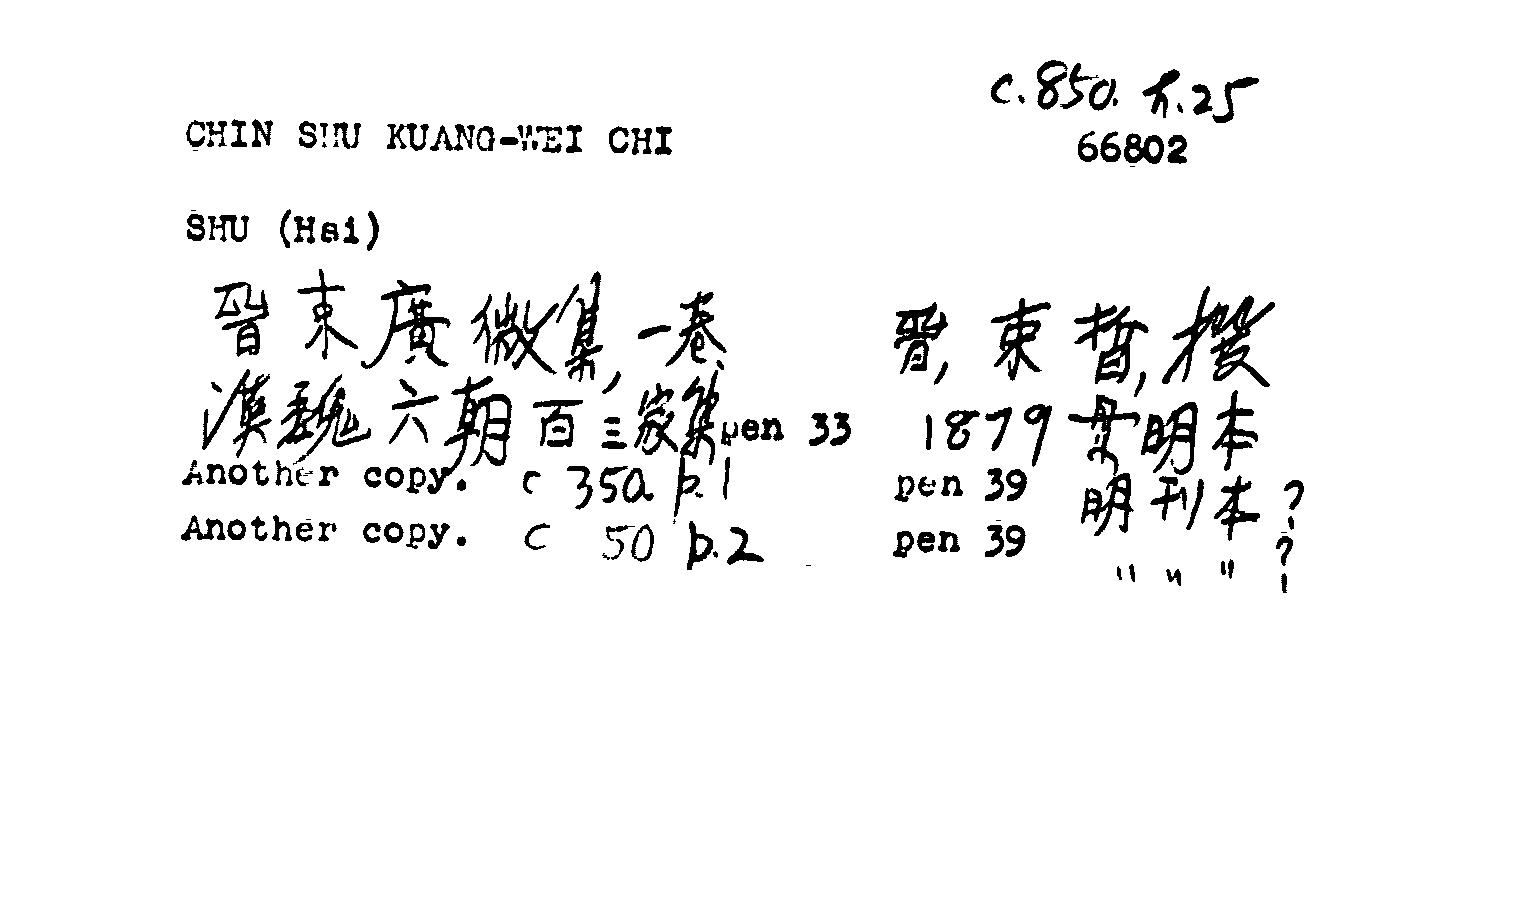 c.850. h.25
CHIN SHU KUANG-WEI CHI
66802
SHU (Hsi)
晉束廣微集, 一卷 晉, 束晳, 撰
漢魏六朝百三家集 pen 33 1879 明本
Another copy. c 350. b.1 pen 39 明刊本?
Another copy. c 50 b.2 pen 39 " " " ?